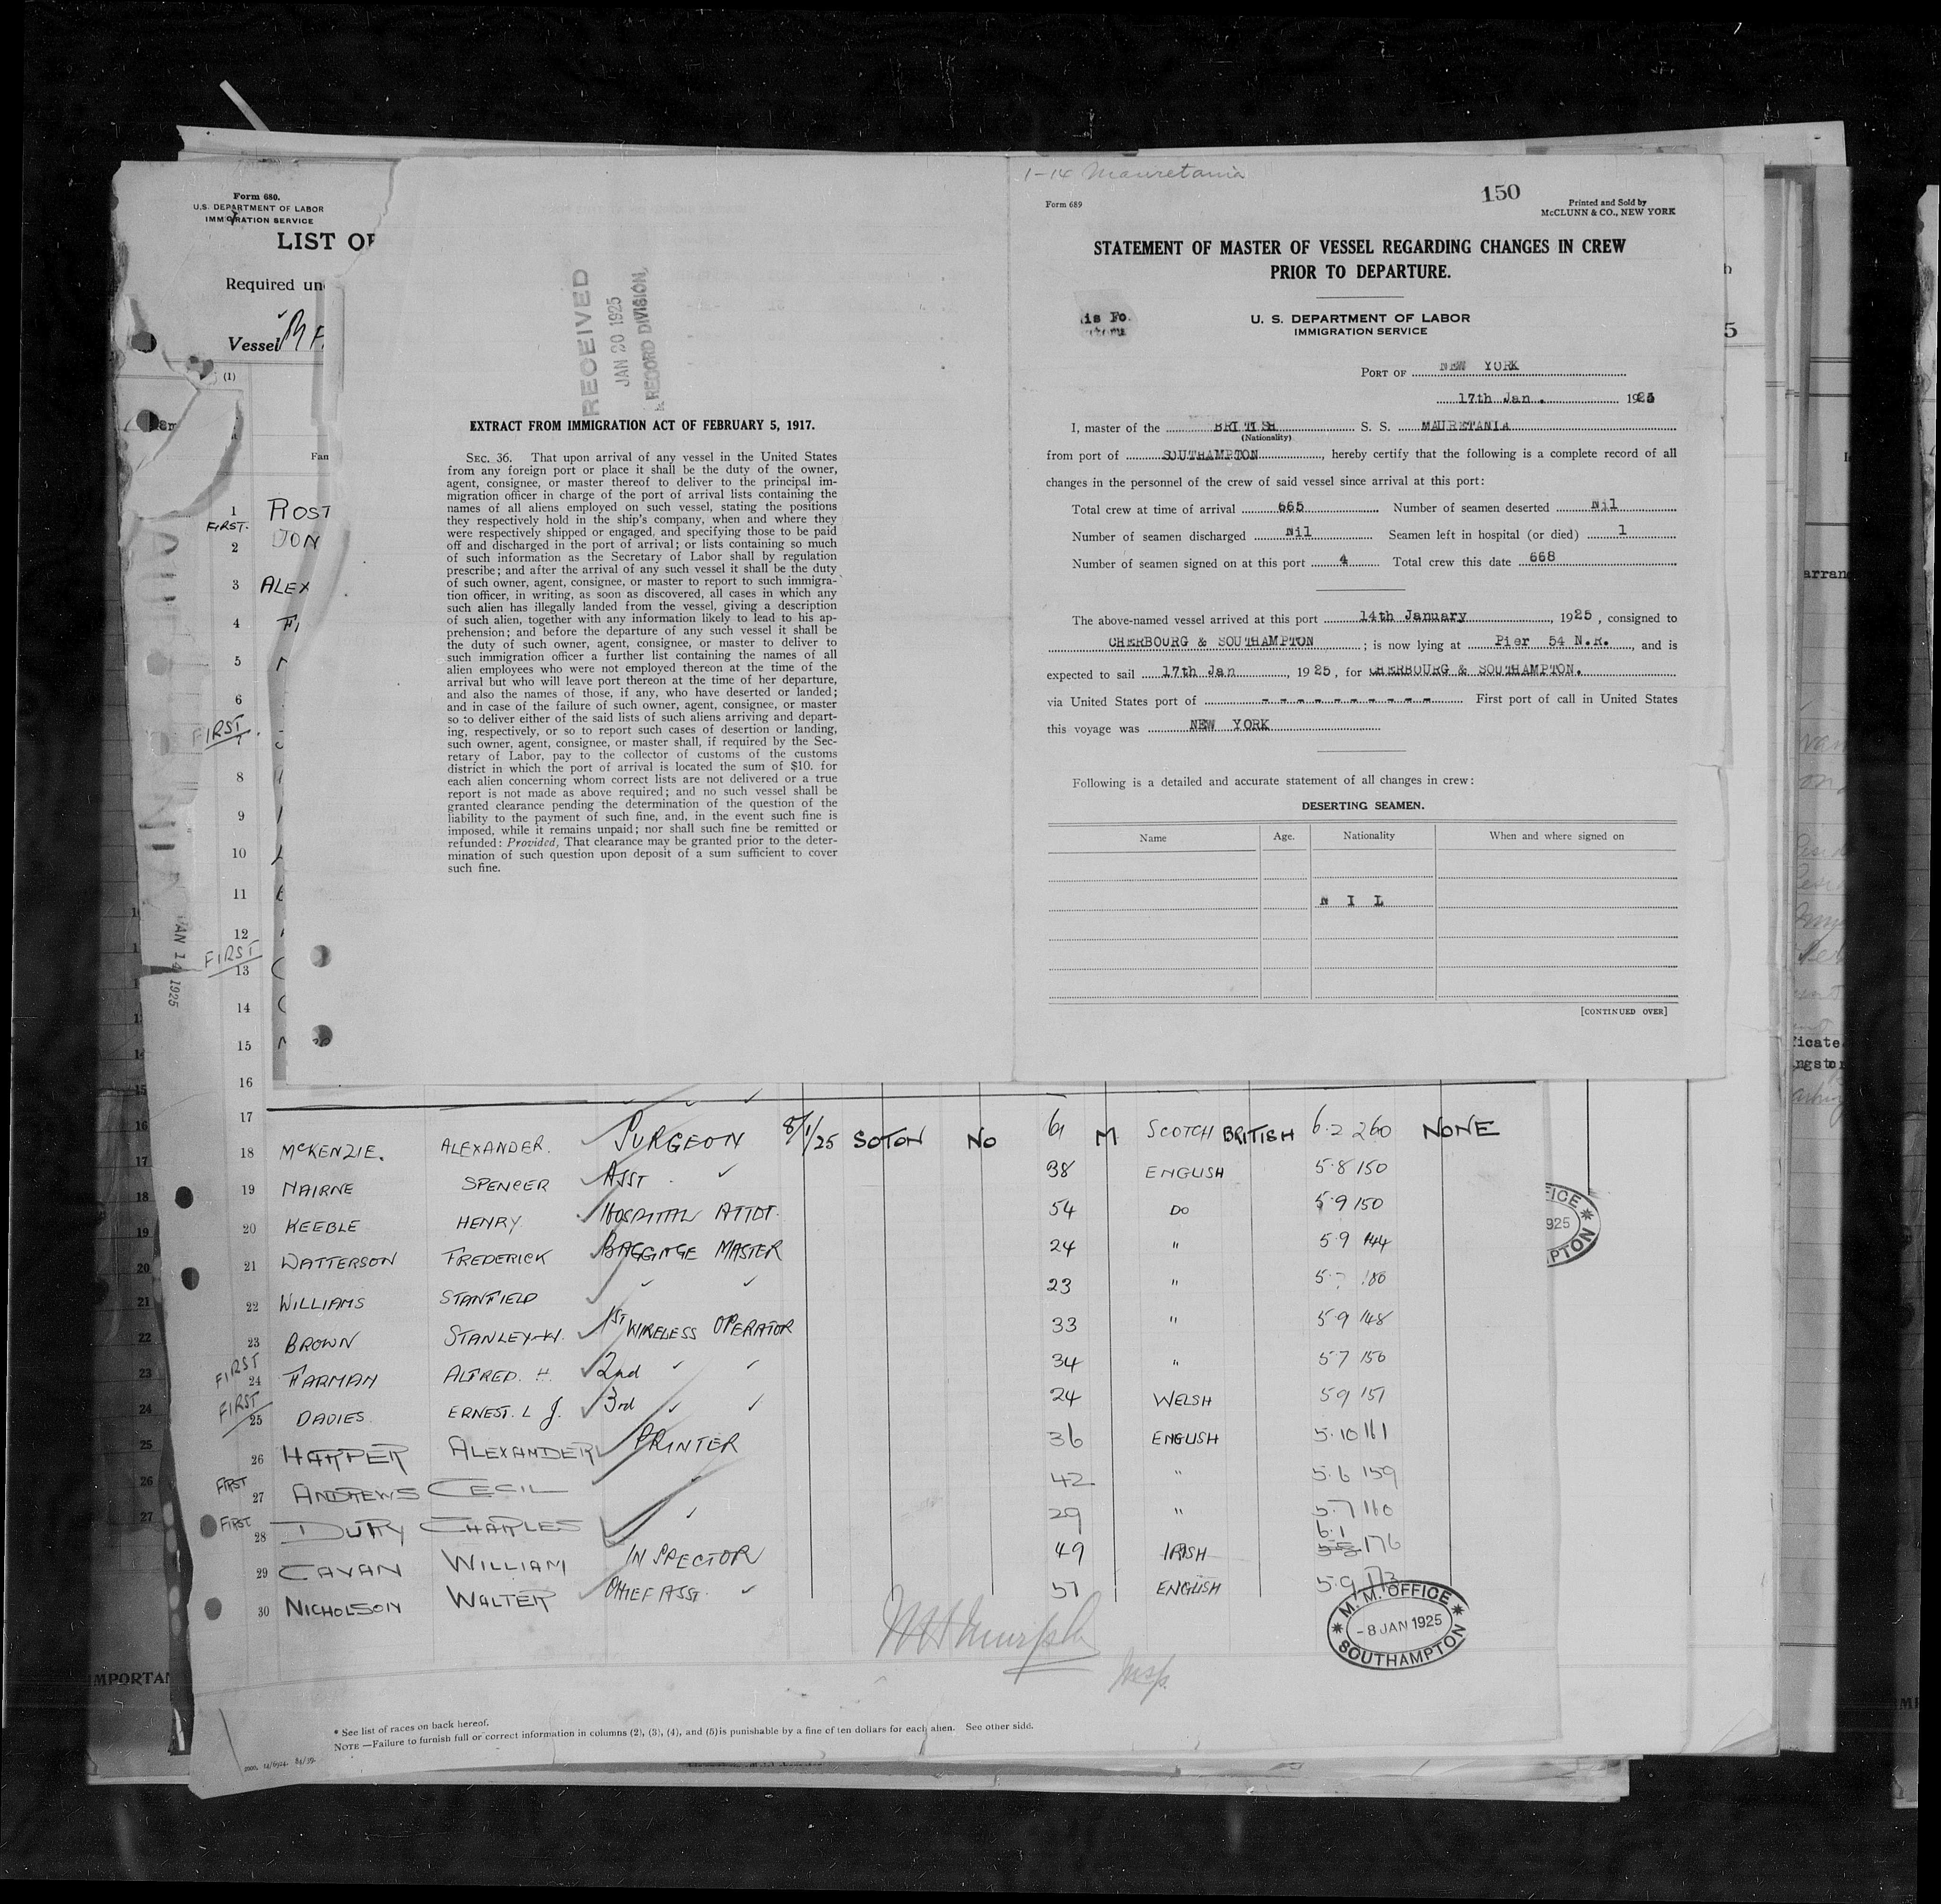 Form 680.
U.S. DEPARTMENT OF LABOR
IMMIGRATION SERVICE
LIST OF
Required un
Vessel MA
(1)
Fam
1 ROST
FIRST.
2 JON
3 ALEX
4
5
6
FIRST.
8
9
10
11
12
FIRST
13
14
15
16
17
JAN 14 1925
RECEIVED
JAN 20 1925
RECORD DIVISION,
EXTRACT FROM IMMIGRATION ACT OF FEBRUARY 5, 1917.
SEC. 36. That upon arrival of any vessel in the United States
from any foreign port or place it shall be the duty of the owner,
agent, consignee, or master thereof to deliver to the principal im-
migration officer in charge of the port of arrival lists containing the
names of all aliens employed on such vessel, stating the positions
they respectively hold in the ship's company, when and where they
were respectively shipped or engaged, and specifying those to be paid
off and discharged in the port of arrival; or lists containing so much
of such information as the Secretary of Labor shall by regulation
prescribe; and after the arrival of any such vessel it shall be the duty
of such owner, agent, consignee, or master to report to such immigra-
tion officer, in writing, as soon as discovered, all cases in which any
such alien has illegally landed from the vessel, giving a description
of such alien, together with any information likely to lead to his ap-
prehension; and before the departure of any such vessel it shall be
the duty of such owner, agent, consignee, or master to deliver to
such immigration officer a further list containing the names of all
alien employees who were not employed thereon at the time of the
arrival but who will leave port thereon at the time of her departure,
and also the names of those, if any, who have deserted or landed;
and in case of the failure of such owner, agent, consignee, or master
so to deliver either of the said lists of such aliens arriving and depart-
ing, respectively, or so to report such cases of desertion or landing,
such owner, agent, consignee, or master shall, if required by the Sec-
retary of Labor, pay to the collector of customs of the customs
district in which the port of arrival is located the sum of $10. for
each alien concerning whom correct lists are not delivered or a true
report is not made as above required; and no such vessel shall be
granted clearance pending the determination of the question of the
liability to the payment of such fine, and, in the event such fine is
imposed, while it remains unpaid; nor shall such fine be remitted or
refunded: Provided, That clearance may be granted prior to the deter-
mination of such question upon deposit of a sum sufficient to cover
such fine.
1-14 Mauretania
150
Form 689
Printed and Sold by
McCLUNN & CO., NEW YORK
STATEMENT OF MASTER OF VESSEL REGARDING CHANGES IN CREW
PRIOR TO DEPARTURE.
U. S. DEPARTMENT OF LABOR
IMMIGRATION SERVICE
is Fo.
PORT OF NEW YORK
17th Jan. 1925
I, master of the BRITISH S. S. MAURETANIA
(Nationality)
from port of SOUTHAMPTON, hereby certify that the following is a complete record of all
changes in the personnel of the crew of said vessel since arrival at this port:
Total crew at time of arrival 665 Number of seamen deserted Nil
Number of seamen discharged Nil Seamen left in hospital (or died) 1
Number of seamen signed on at this port 4 Total crew this date 668
The above-named vessel arrived at this port 14th January, 1925, consigned to
CHERBOURG & SOUTHAMPTON; is now lying at Pier 54 N.R., and is
expected to sail 17th Jan, 1925, for CHERBOURG & SOUTHAMPTON.
via United States port of - - - - - - - - - - First port of call in United States
this voyage was NEW YORK
Following is a detailed and accurate statement of all changes in crew:
DESERTING SEAMEN.
Name Age. Nationality When and where signed on
N I L
[CONTINUED OVER]
arran
ficate
ngston
18 McKENZIE. ALEXANDER. SURGEON 8/1/25 SOTON NO 61 M SCOTCH BRITISH 6.2 260 NONE
19 NAIRNE SPENCER ASST 38 ENGLISH 5.8 150
20 KEEBLE HENRY HOSPITAL ATTDT. 54 DO 5.9 150
21 WATTERSON FREDERICK BAGGAGE MASTER 24 " 5.9 144
22 WILLIAMS STANFIELD 23 "
23 BROWN STANLEY W. 1ST WIRELESS OPERATOR 33 " 5.9 148
FIRST
24 FARMAN ALFRED. H. 2nd 34 " 5.7 150
FIRST
25 DAVIES ERNEST. L J. 3rd 24 WELSH 5.9 151
26 HARPER ALEXANDER PRINTER 36 ENGLISH 5.10 161
FIRST
27 ANDREWS CECIL 42 " 5.6 159
FIRST
28 DUTTY CHARLES 29 " 5.7 160
29 CAVAN WILLIAM INSPECTOR 49 IRISH 6.1 176
30 NICHOLSON WALTER CHIEF ASST. 57 ENGLISH 5.9 173
Insp.
M. M. OFFICE
- 8 JAN 1925
SOUTHAMPTON
* See list of races on back hereof.
NOTE —Failure to furnish full or correct information in columns (2), (3), (4), and (5) is punishable by a fine of ten dollars for each alien. See other side.